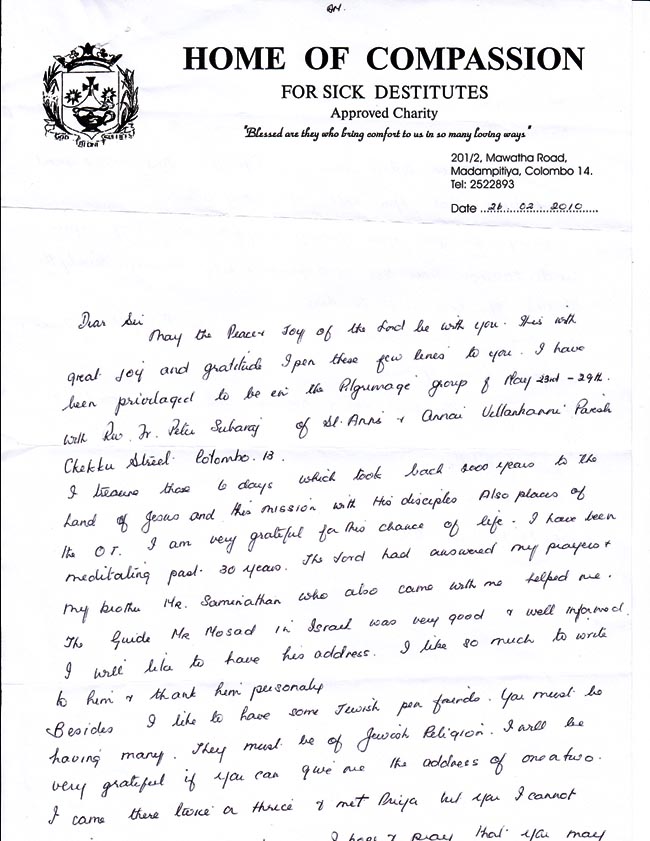 HOME OF COMPASSION
FOR SICK DESTITUTES
Approved Charity
"Blessed are they who bring comfort to us in so many loving ways"
201/2, Mawatha Road,
Madampitiya, Colombo 14.
Tel: 2522893
Date 26.02.2010
Dear Sir
May the Peace & Joy of the Lord be with you. This with
great joy and gratitude I pen these few lines to you. I have
been priviladged to be in the Pilgrimage group of May 23rd - 29th.
with Rev. Fr. Peter Subaraj of St. Anns & Annai Vellankanni Parish
Chekku Street Colombo. 13.
I treasure those 6 days which took back 2000 years to the
Land of Jesus and His mission with His disciples Also places of
the O.T. I am very grateful for this chance of life. I have been
meditating past 30 years. The Lord had answered my prayers &
my brother Mr. Saminathan who also came with me helped me.
The Guide Mr Mosad in Israel was very good & well informed.
I will like to have his address. I like so much to write
to him & thank him personaly
Besides I like to have some Jewish pen friends. You must be
having many. They must be of Jewish Religion. I will be
very grateful if you can give me the address of one or two.
I came there twice or thrice & met Priya but you I cannot
I hope & pray that you may